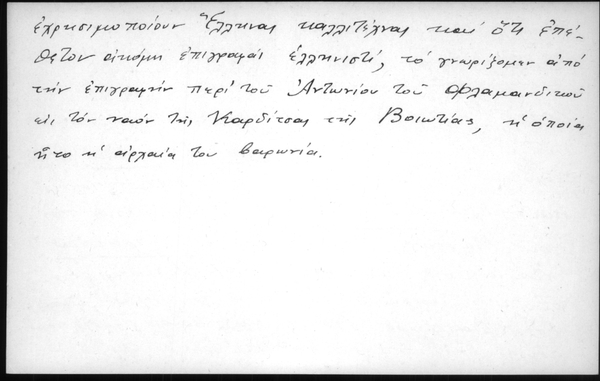 ἐχρησιμοποίουν Ἕλληνας καλλιτέχνας καί ὅτι ἐπέ-
θετον ἀκόμη ἐπιγραφαί ἑλληνιστί, τό γνωρίζομεν ἀπό
τήν ἐπιγραφήν περί τοῦ Ἀντωνίου τοῦ Φλαμανδικοῦ
εἰς τόν ναόν τῆς Καρδίτσας τῆς Βοιωτίας, ἡ ὁποία
ἦτο ἡ ἀρχαία του βαρωνία.